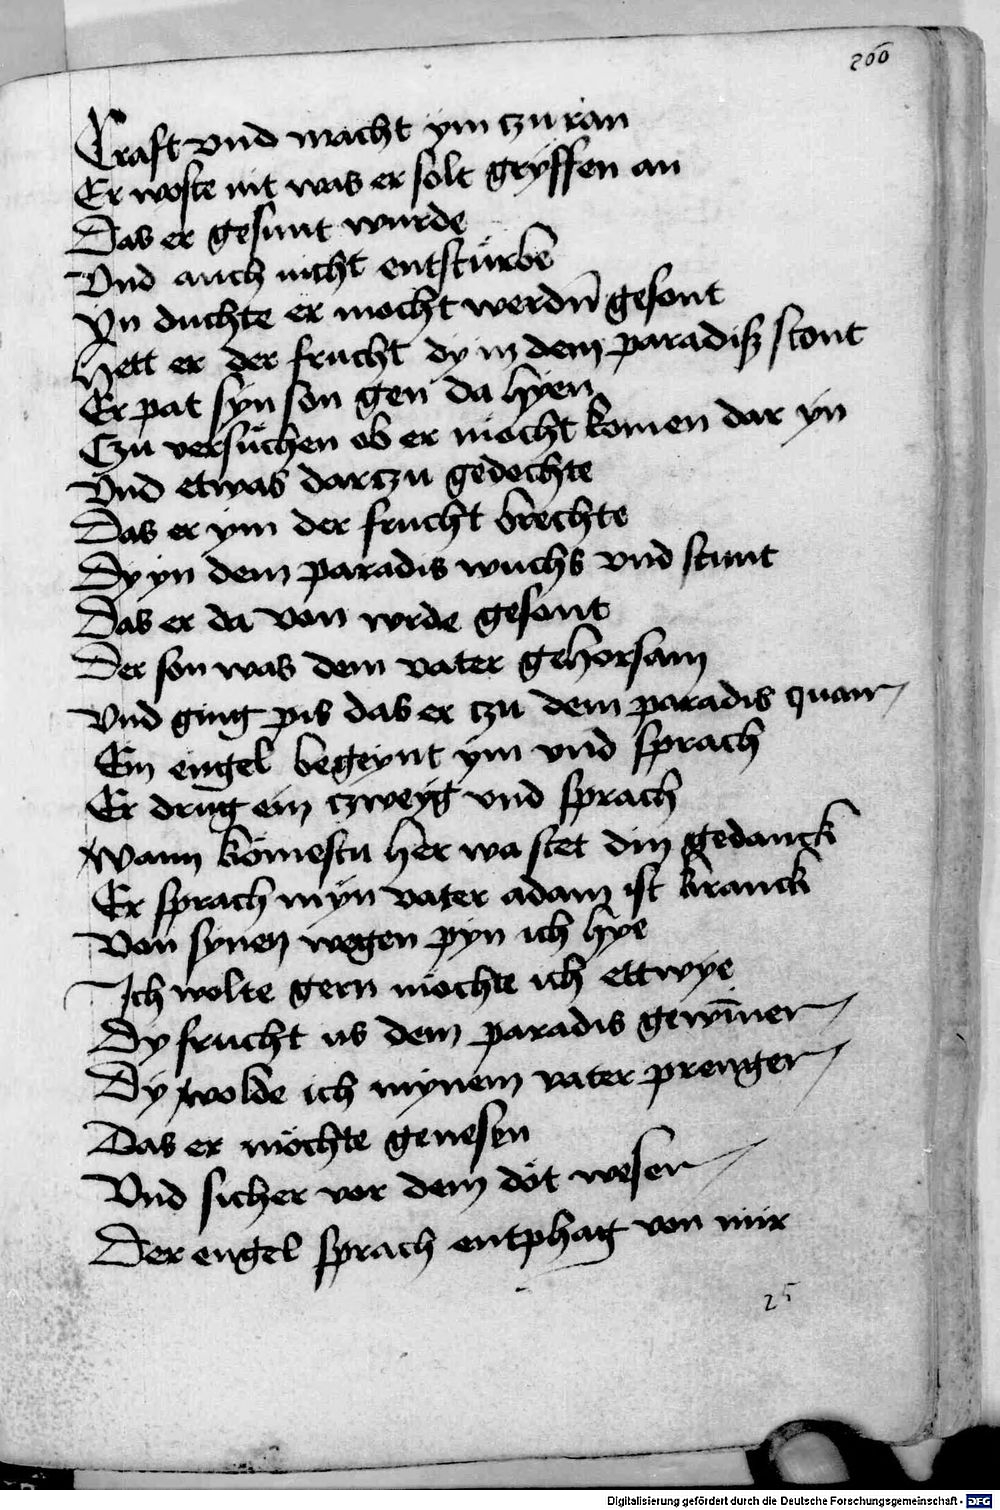 200
Craft vnd macht ym czu ran
Er woste nit was er solt gryffen an
Das er gesunt wurde
Vnd auch nicht entstürbe
Yn duchte er mocht werdn̄ gesont
Hett er der frucht dy in dem paradisz stont
Er pat syn son gen da hyen
Czu versuchen ob er mocht komen dar yn
Vnd etwas darczu gedechte
Das er ym der frucht brechte
Dy yn dem paradis wuchs vnd stunt
Das er da von wrde gesont
Der son was dem vater gehorsam
Vnd ging pis das er czu dem paradis quam
Ein engel begeynt ym vnd sprach
Er drug ein czweyg vnd sprach
Wann kömestu her wa stet din gedanck
Er sprach myn vater adam ist kranck
Von synen wegen pyn ich hye
Ich wolte gern möchte ich ettwye
Dy frucht us dem paradis gewīnen
Dy wolde ich mynem vater prengen
Das er möchte genesen
Vnd sicher vor dem döt wesen
Der engel sprach entphag von mir
25
Digitalisierung gefördert durch die Deutsche Forschungsgemeinschaft - DFG